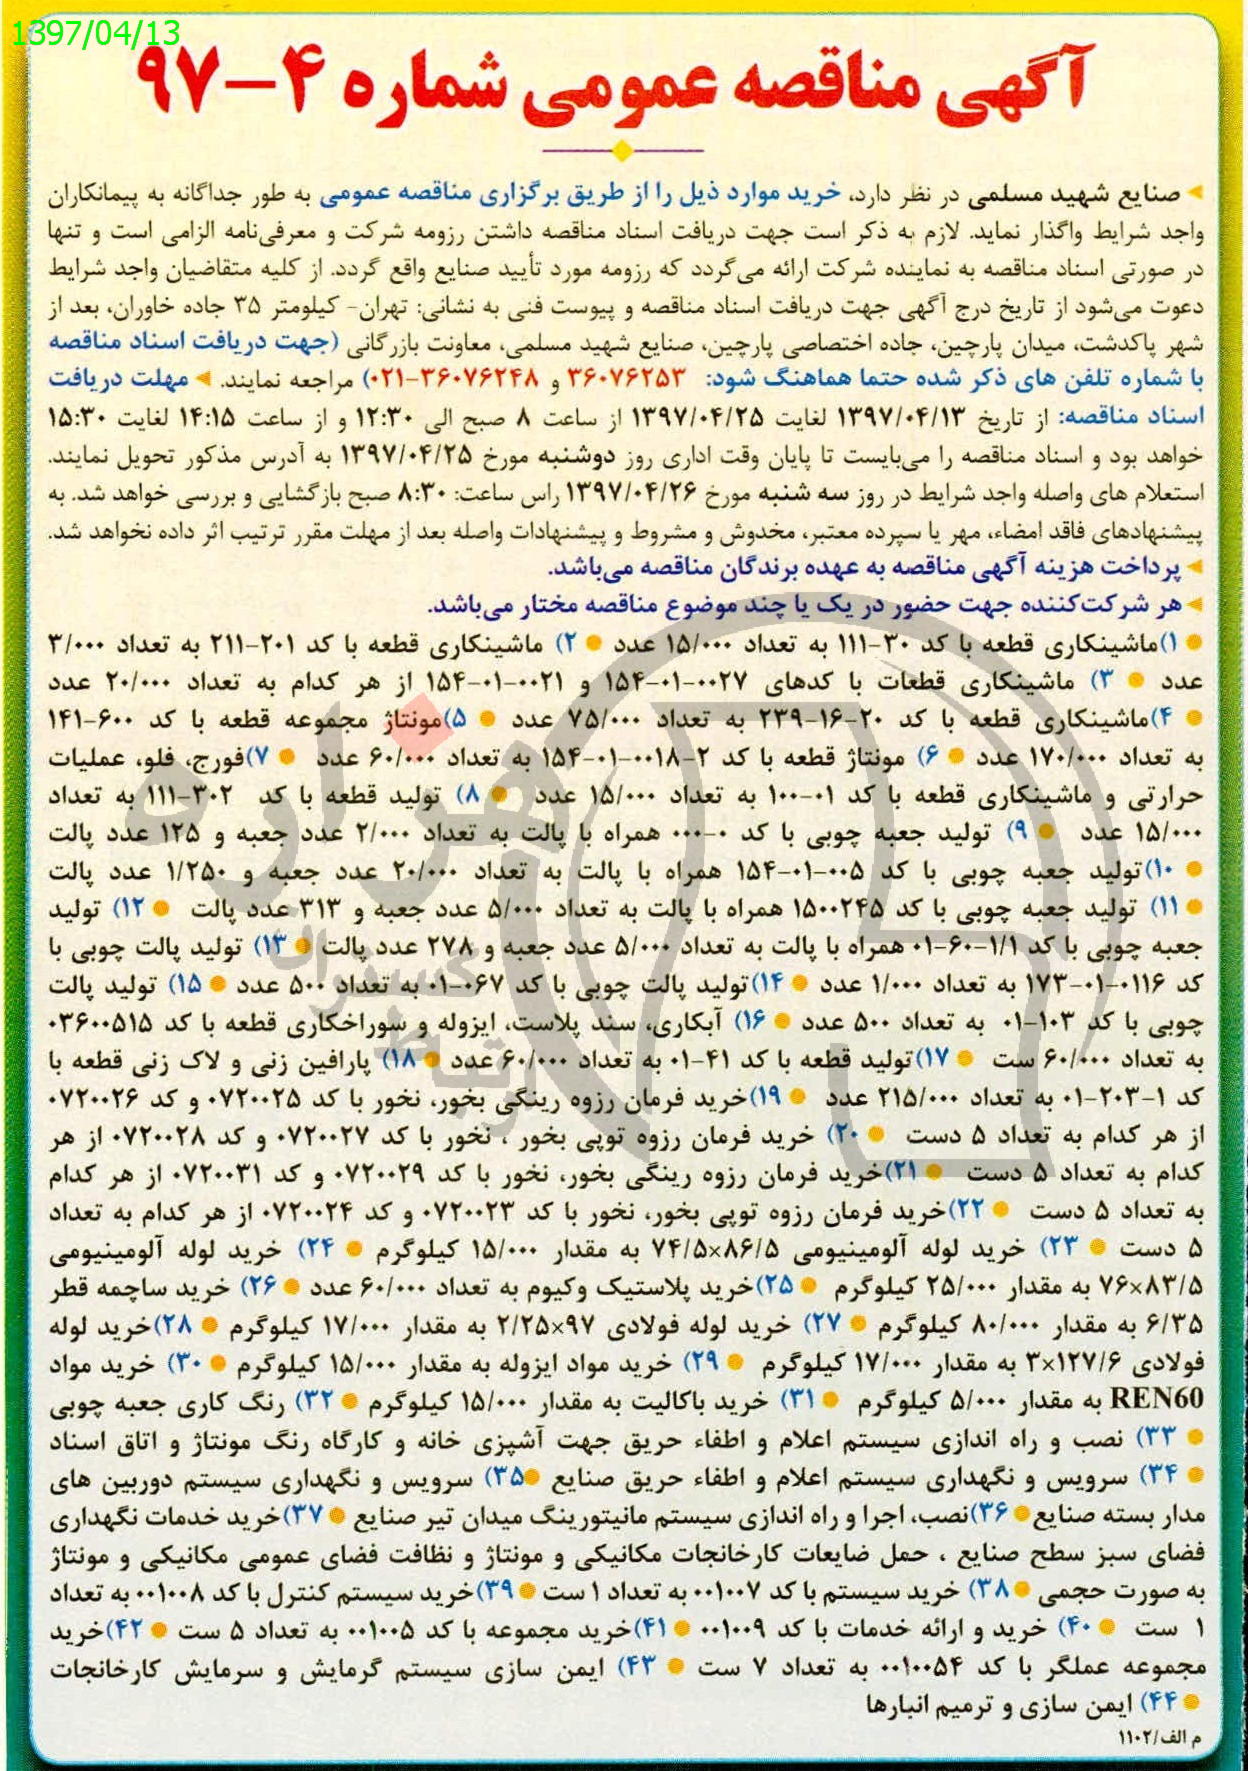 1397/04/13
آگهی مناقصه عمومی شماره ۴-۹۷
صنایع شهید مسلمی در نظر دارد، خرید موارد ذیل را از طریق برگزاری مناقصه عمومی به طور جداگانه به پیمانکاران
واجد شرایط واگذار نماید. لازم به ذکر است جهت دریافت اسناد مناقصه داشتن رزومه شرکت و معرفی‌نامه الزامی است و تنها
در صورتی اسناد مناقصه به نماینده شرکت ارائه می‌گردد که رزومه مورد تأیید صنایع واقع گردد. از کلیه متقاضیان واجد شرایط
دعوت می‌شود از تاریخ درج آگهی جهت دریافت اسناد مناقصه و پیوست فنی به نشانی: تهران- کیلومتر ۳۵ جاده خاوران، بعد از
شهر پاکدشت، میدان پارچین، جاده اختصاصی پارچین، صنایع شهید مسلمی، معاونت بازرگانی (جهت دریافت اسناد مناقصه
با شماره تلفن های ذکر شده حتما هماهنگ شود: ۳۶۰۷۶۲۵۳ و ۳۶۰۷۶۲۴۸-۰۲۱) مراجعه نمایند. مهلت دریافت
اسناد مناقصه: از تاریخ ۱۳۹۷/۰۴/۱۳ لغایت ۱۳۹۷/۰۴/۲۵ از ساعت ۸ صبح الی ۱۲:۳۰ و از ساعت ۱۴:۱۵ لغایت ۱۵:۳۰
خواهد بود و اسناد مناقصه را می‌بایست تا پایان وقت اداری روز دوشنبه مورخ ۱۳۹۷/۰۴/۲۵ به آدرس مذکور تحویل نمایند.
استعلام های واصله واجد شرایط در روز سه شنبه مورخ ۱۳۹۷/۰۴/۲۶ راس ساعت: ۸:۳۰ صبح بازگشایی و بررسی خواهد شد. به
پیشنهادهای فاقد امضاء، مهر یا سپرده معتبر، مخدوش و مشروط و پیشنهادات واصله بعد از مهلت مقرر ترتیب اثر داده نخواهد شد.
پرداخت هزینه آگهی مناقصه به عهده برندگان مناقصه می‌باشد.
هر شرکت‌کننده جهت حضور در یک یا چند موضوع مناقصه مختار می‌باشد.
● ۱)ماشینکاری قطعه با کد ۳۰-۱۱۱ به تعداد ۱۵/۰۰۰ عدد ● ۲) ماشینکاری قطعه با کد ۲۰۱-۲۱۱ به تعداد ۳/۰۰۰
عدد ● ۳) ماشینکاری قطعات با کدهای ۰۰۲۷-۰۱-۱۵۴ و ۰۰۲۱-۰۱-۱۵۴ از هر کدام به تعداد ۲۰/۰۰۰ عدد
● ۴)ماشینکاری قطعه با کد ۲۰-۱۶-۲۳۹ به تعداد ۷۵/۰۰۰ عدد ● ۵)مونتاژ مجموعه قطعه با کد ۶۰۰-۱۴۱
به تعداد ۱۷۰/۰۰۰ عدد ● ۶) مونتاژ قطعه با کد ۲-۰۰۱۸-۰۱-۱۵۴ به تعداد ۶۰/۰۰۰ عدد ● ۷)فورج، فلو، عملیات
حرارتی و ماشینکاری قطعه با کد ۰۱-۱۰۰ به تعداد ۱۵/۰۰۰ عدد ● ۸) تولید قطعه با کد ۳۰۲-۱۱۱ به تعداد
۱۵/۰۰۰ عدد ● ۹) تولید جعبه چوبی با کد ۰-۰۰۰ همراه با پالت به تعداد ۲/۰۰۰ عدد جعبه و ۱۲۵ عدد پالت
● ۱۰)تولید جعبه چوبی با کد ۰۰۵-۰۱-۱۵۴ همراه با پالت به تعداد ۲۰/۰۰۰ عدد جعبه و ۱/۲۵۰ عدد پالت
● ۱۱) تولید جعبه چوبی با کد ۱۵۰۰۲۴۵ همراه با پالت به تعداد ۵/۰۰۰ عدد جعبه و ۳۱۳ عدد پالت ● ۱۲) تولید
جعبه چوبی با کد ۱/۱-۶۰-۰۱ همراه با پالت به تعداد ۵/۰۰۰ عدد جعبه و ۲۷۸ عدد پالت ● ۱۳) تولید پالت چوبی با
کد ۰۱۱۶-۰۱-۱۷۳ به تعداد ۱/۰۰۰ عدد ● ۱۴)تولید پالت چوبی با کد ۰۶۷-۰۱ به تعداد ۵۰۰ عدد ● ۱۵) تولید پالت
چوبی با کد ۱۰۳-۰۱ به تعداد ۵۰۰ عدد ● ۱۶) آبکاری، سند پلاست، ایزوله و سوراخکاری قطعه با کد ۰۳۶۰۰۵۱۵
به تعداد ۶۰/۰۰۰ ست ● ۱۷)تولید قطعه با کد ۴۱-۰۱ به تعداد ۶۰/۰۰۰ عدد ● ۱۸) پارافین زنی و لاک زنی قطعه با
کد ۱-۲۰۳-۰۱ به تعداد ۲۱۵/۰۰۰ عدد ● ۱۹)خرید فرمان رزوه رینگی بخور، نخور با کد ۰۷۲۰۰۲۵ و کد ۰۷۲۰۰۲۶
از هر کدام به تعداد ۵ دست ● ۲۰) خرید فرمان رزوه توپی بخور ، نخور با کد ۰۷۲۰۰۲۷ و کد ۰۷۲۰۰۲۸ از هر
کدام به تعداد ۵ دست ● ۲۱)خرید فرمان رزوه رینگی بخور، نخور با کد ۰۷۲۰۰۲۹ و کد ۰۷۲۰۰۳۱ از هر کدام
به تعداد ۵ دست ● ۲۲)خرید فرمان رزوه توپی بخور، نخور با کد ۰۷۲۰۰۲۳ و کد ۰۷۲۰۰۲۴ از هر کدام به تعداد
۵ دست ● ۲۳) خرید لوله آلومینیومی ۸۶/۵×۷۴/۵ به مقدار ۱۵/۰۰۰ کیلوگرم ● ۲۴) خرید لوله آلومینیومی
۸۳/۵×۷۶ به مقدار ۲۵/۰۰۰ کیلوگرم ● ۲۵)خرید پلاستیک وکیوم به تعداد ۶۰/۰۰۰ عدد ● ۲۶) خرید ساچمه قطر
۶/۳۵ به مقدار ۸۰/۰۰۰ کیلوگرم ● ۲۷) خرید لوله فولادی ۹۷×۲/۲۵ به مقدار ۱۷/۰۰۰ کیلوگرم ● ۲۸)خرید لوله
فولادی ۱۲۷/۶×۳ به مقدار ۱۷/۰۰۰ کیلوگرم ● ۲۹) خرید مواد ایزوله به مقدار ۱۵/۰۰۰ کیلوگرم ● ۳۰) خرید مواد
REN60 به مقدار ۵/۰۰۰ کیلوگرم ● ۳۱) خرید باکالیت به مقدار ۱۵/۰۰۰ کیلوگرم ● ۳۲) رنگ کاری جعبه چوبی
● ۳۳) نصب و راه اندازی سیستم اعلام و اطفاء حریق جهت آشپزی خانه و کارگاه رنگ مونتاژ و اتاق اسناد
● ۳۴) سرویس و نگهداری سیستم اعلام و اطفاء حریق صنایع ● ۳۵) سرویس و نگهداری سیستم دوربین های
مدار بسته صنایع ● ۳۶)نصب، اجرا و راه اندازی سیستم مانیتورینگ میدان تیر صنایع ● ۳۷)خرید خدمات نگهداری
فضای سبز سطح صنایع ، حمل ضایعات کارخانجات مکانیکی و مونتاژ و نظافت فضای عمومی مکانیکی و مونتاژ
به صورت حجمی ● ۳۸) خرید سیستم با کد ۰۰۱۰۰۷ به تعداد ۱ ست ● ۳۹)خرید سیستم کنترل با کد ۰۰۱۰۰۸ به تعداد
۱ ست ● ۴۰) خرید و ارائه خدمات با کد ۰۰۱۰۰۹ ● ۴۱)خرید مجموعه با کد ۰۰۱۰۰۵ به تعداد ۵ ست ● ۴۲)خرید
مجموعه عملگر با کد ۰۰۱۰۰۵۴ به تعداد ۷ ست ● ۴۳) ایمن سازی سیستم گرمایش و سرمایش کارخانجات
● ۴۴) ایمن سازی و ترمیم انبارها
م الف/۱۱۰۲